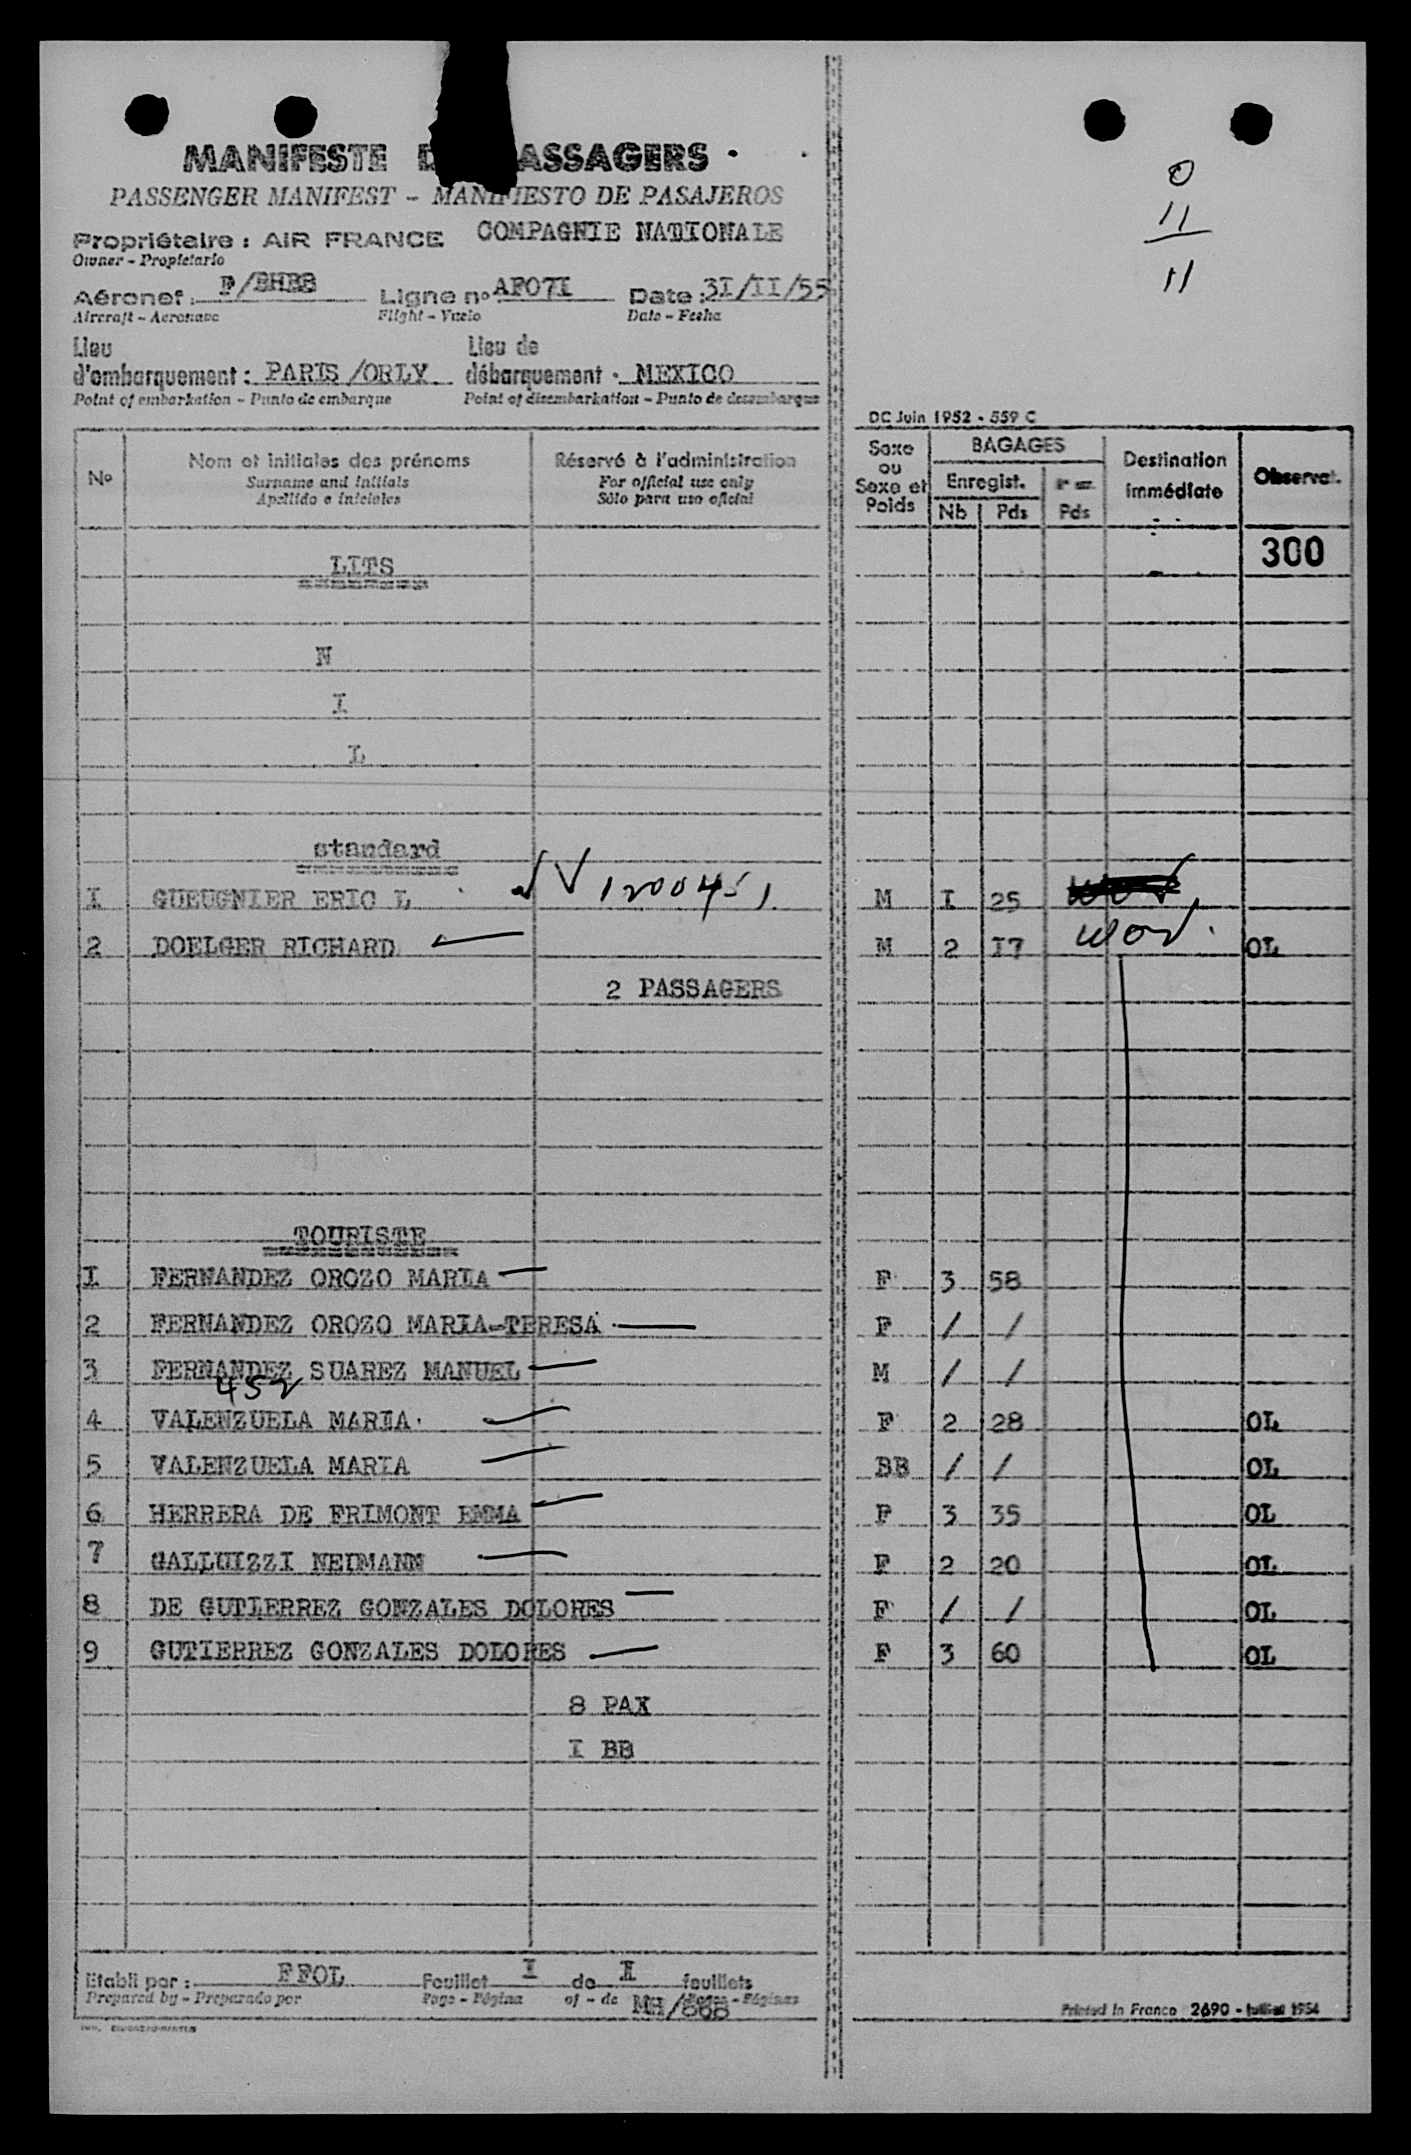 MANIFESTE D ASSAGERS
PASSENGER MANIFEST - MANIFIESTO DE PASAJEROS
Propriétaire : AIR FRANCE COMPAGNIE NATIONALE
Owner - Propietario
Aéronef : F/BHBB Ligne n° AF07I Date : 3I/II/55
Aircraft - Aeronave Flight - Vuelo Date - Fecha
Lieu d'embarquement : PARIS/ORLY Lieu de débarquement : MEXICO
Point of embarkation - Punto de embarque Point of disembarkation - Punto de desembarque
0
11
11
DC Juin 1952 - 559 C
No Nom et initiales des prénoms Réservé à l'administration Sexe ou Sexe et Poids BAGAGES Destination immédiate Observat.
Surname and initials For official use only Enregist.
Apellido e iniciales Sólo para uso oficial Nb Pds Pds
300
LITS
N
I
L
standard
I GUEUGNIER ERIC L V 1200451 M I 25
2 DOELGER RICHARD M 2 I7 OL
2 PASSAGERS
TOURISTE
I FERNANDEZ OROZO MARIA F 3 58
2 FERNANDEZ OROZO MARIA-TERESA F / /
3 FERNANDEZ SUAREZ MANUEL M / /
452
4 VALENZUELA MARIA F 2 28 OL
5 VALENZUELA MARIA BB / / OL
6 HERRERA DE FRIMONT EMMA F 3 35 OL
7 GALLUIZZI NEUMANN F 2 20 OL
8 DE GUTIERREZ GONZALES DOLORES F / / OL
9 GUTIERREZ GONZALES DOLORES F 3 60 OL
8 PAX
I BB
Etabli par : FFOL Feuillet I de I feuillets
Prepared by - Preparado por Page - Página of - de Pages - Páginas
Printed in France 2690 - Juillet 1954